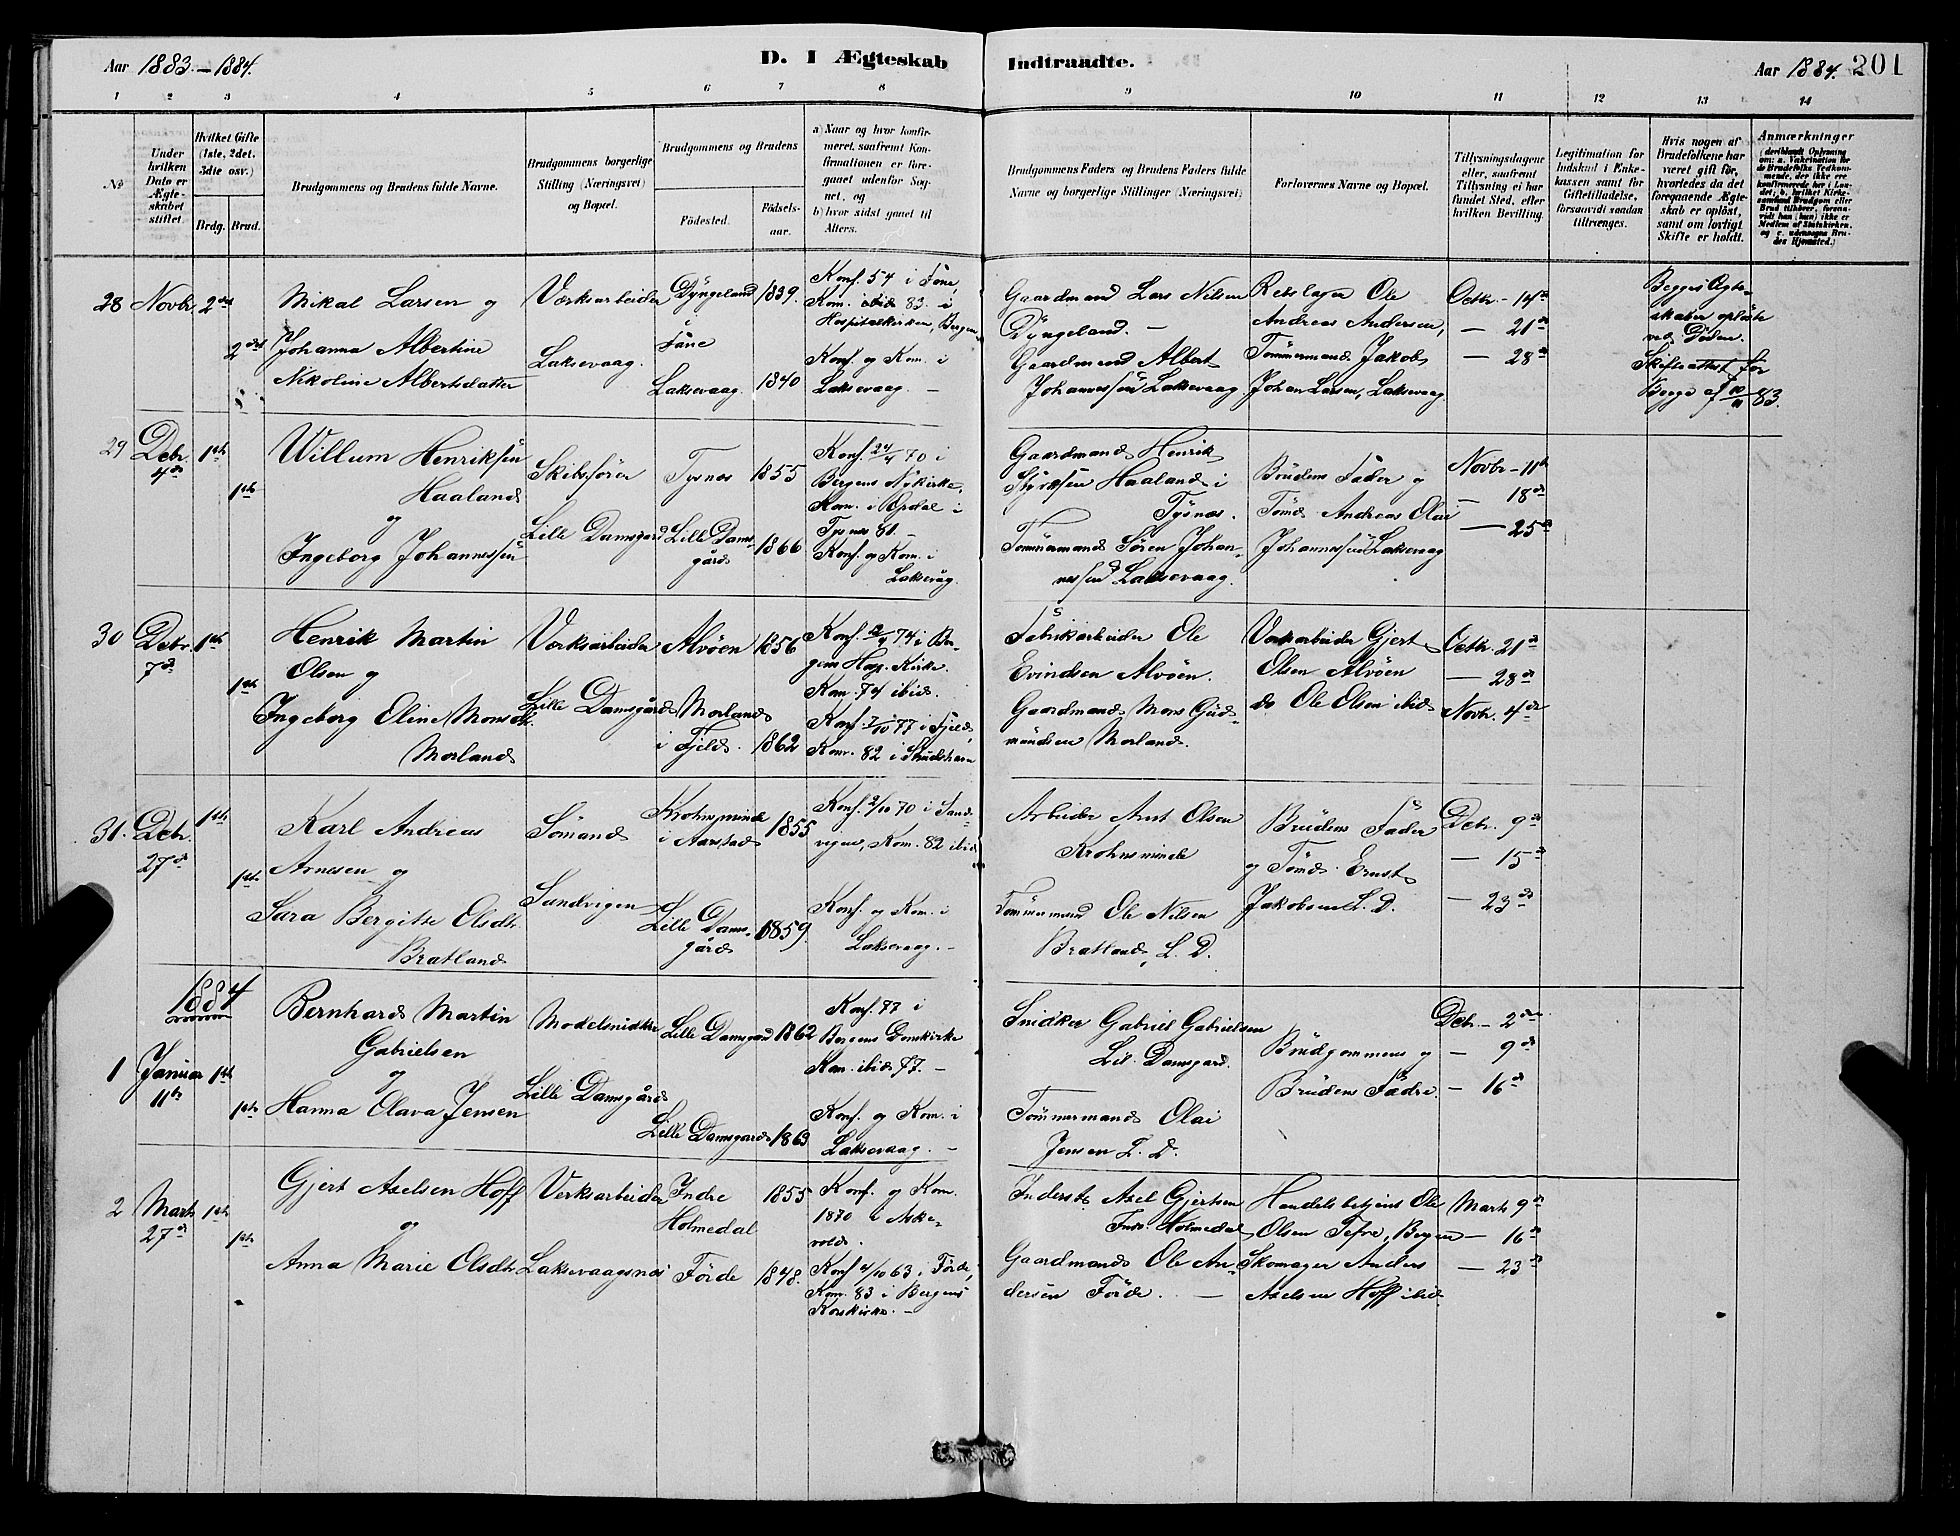 Aar 1883.-1884.
D. I Ægteskab Indtraadte.
Aar 1884. 201
1 2 3 4 5 6 7 8 9 10 11 12 13 14
No
Under hvilken Dato er Ægteskabet stiftet.
Hvilket Gifte (1ste, 2det. 3dte osv.)
Brdg. Brud.
Brudgommens og Brudens fulde Navne.
Brudgommens borgerlige Stilling (Næringsvei) og Bopæl.
Brudgommens og Brudens
Födested.
Födsels-aar.
a) Naar og hvor konfirmeret, saafremt Konfirmationen er foregaaet udenfor Sognet, og
b) hvor sidst gaaet til Alters.
Brudgommens Faders og Brudens Faders fulde Navne og borgerlige Stillinger (Næringsvei).
Forlovernes Navne og Bopæl.
Tillysningsdagene eller, saafremt Tillysning ei har fundet Sted, efter hvilken Bevilling.
Legitimation for Indskud i Enkekassen samt for Giftetilladelse, forsaavidt saadan tiltrænges.
Hvis nogen af Brudefolkene har været gift för, hvorledes da det foregaaende Ægteskab er oplöst, samt om lovligt Skifte er holdt.
Anmærkninger
(deriblandt Oplysning om: a. Vakcination for de Brudefolks Vedkommende, der ikke ere konfirmerede her i Landet; b. hvilket Kirkesamfund Brudgom eller Brud tilhörer, forsaavidt han (hun) ikke er Medlem af Statskirken, og c. udensogns Brudes Hjemsted.)
28 Novbr. 2det
2det
Mikal Larsen og
Johanna Albertine
Nikoline Albertsdatter
Værksarbeider
Laksevaag.
Dyngeland
Fane
Laksevaag.
1839.
1840
Konf. 54 i Fane,
Kom. ibid 83. i
Hospitalkirken, Bergen
Konf. og Kom. i
Laksevaag. —
Gaardmand Lars Nilsen
Dyngeland. —
Gaardmand Albert
Johannessen Laksevaag.
Rebslager Ole
Andreas Andersen,
Tömmermand Jakob
Johan Larsen, Laksevaag
Octbr. — 14de
— 21de
— 28de
Begges Ægte-
skaber oplöste
ved Döden.
Skifteattest for
Begge af 83.
29 Debr. 4de 1ste
1ste
Willum Henriksen
Haaland
og
Ingeborg Johannessen
Skibsförer
Lille Damsgård
Tysnes
Lille Dams-
gård
1855
1866
Konf. 24/4 70 i
Bergens Nykirke,
Kom. i Opdal i
Tysnes 81. —
Konf. og Kom. i
Laksevåg.
Gaardmand Henrik
Haaland i
Tysnes.
Tömmermand Sören Johan-
nessen Laksevaag.
Brudens Fader og
Tömd. Andreas Olai
Johannessen Laksevaag
Novbr — 11te
— 18de
— 25de
30 Debr. 7de 1ste
1ste
Henrik Martin
Olsen og
Ingeborg Oline Monsdtr.
Morland
Værksarbeider
Lille Damsgård
Alvöen
Morland
i Fjeld.
1856
1862
Konf. 74 i Ber-
gens Hosp. Kirke.
Kom. 74 ibid.
Konf. 7/10 77 i Fjeld,
Kom. 82 i Strudshavn
Fabrikarbeider Ole
Evindsen Alvöen.
Gaardmand Mons Gud-
mundsen Morland.
Værkarbeider Gjert
Olsen Alvöen
do Ole Olsen ibid
Octbr. 21de
— 28de
Novbr. 4de
31. Debr. 27de 1ste
1ste
Karl Andreas
Arnesen og
Sara Bergitte Olsdtr.
Bratland
Sömand
Sandvigen
Krohnsminde
i Aarstad
Lille Dams-
gård
1855
1859.
Konf. 2/10 70 i Sand-
vigen, Kom. 82 ibid
Konf. og Kom. i
Laksevaag. —
Arbeider Arnt Olsen
Krohnsminde
Tömmermand Ole Nilsen
Bratland, L. D.
Brudens Fader
og Tömd. Ernst
Jakobsen L. D.
Debr. 9de
— 15de
— 23de
1884
1 Januar 11te 1ste
1ste
Bernhard Martin
Gabrielsen
og
Hanna Olava Jensen
Modelsnidker
Lille Damsgård
Lille Damsgard
Lille Damsgard
1862
1863
Konf. 77 i
Bergens Domkirke
Kom. ibid 77. —
Konf. og Kom. i
Laksevaag. —
Snidker Gabriel Gabrielsen
Lil. Damsgard.
Tömmermand Olai
Jensen L. D.
Brudgommens og
Brudens Fædre.
Debr — 2den
— 9de
— 16de
2 Marts 27de 1ste
1ste
Gjert Axelsen Hoff
og
Anna Marie Olsdtr.
Verksarbeider
Laksevaagsnes
Indre
Holmedal
Förde
1855
1848.
Konf. og Kom.
1870 i Aske-
vold.
Konf 4/10 63 i Förde,
Kom. 83 i Bergens
Korskirke. —
Inderst Axel Gjertsen
Indr. Holmedal
Gaardmand Ole An-
dersen Förde. —
Handelsbetjent Ole
Olsen Tefre, Bergen
Skomager Anders
Axelsen Hoff ibid.
Marts 9de
— 16de
— 23de